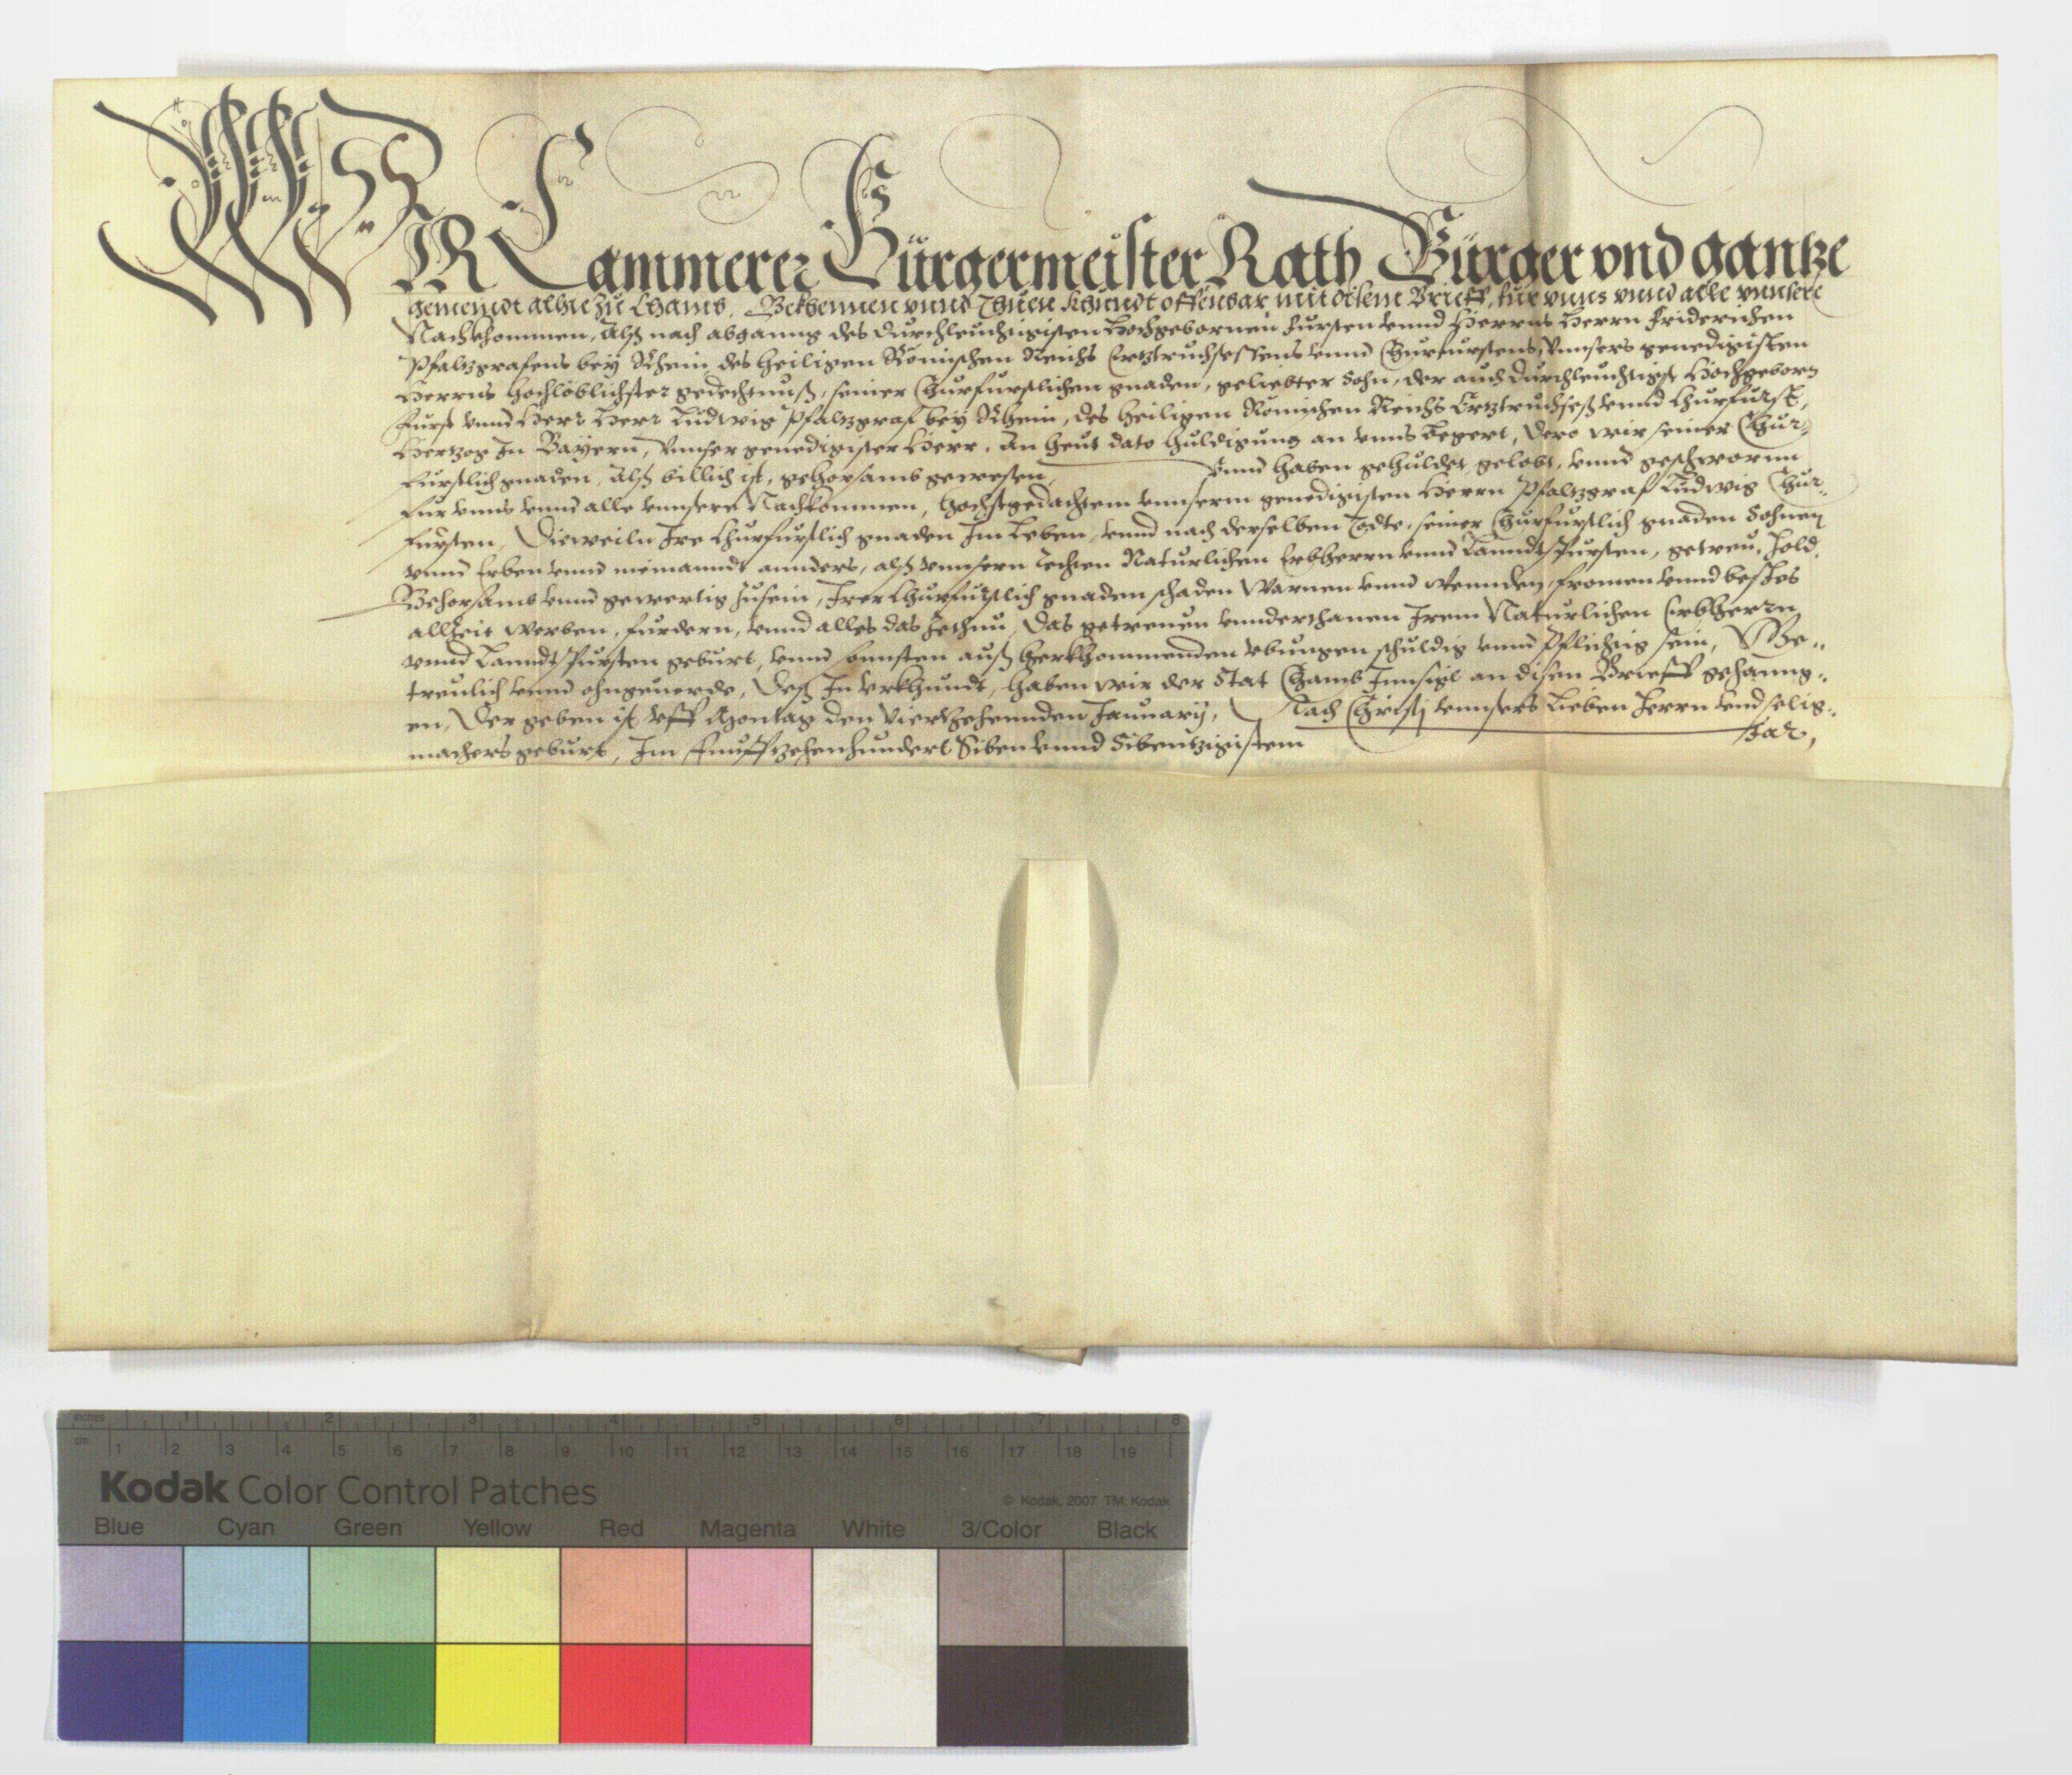 WIR Cammerer Bürgermeister Rath Bürger vnd gantze
gemeindt alhie zu Chamb, Bekhennen vnnd Thuen khundt offenbar mit disem Brieff, fur vnns vnnd alle vnnsere
Nachkhommen, Alß nach abganng des Durchleuchtigisten Hochgebornen Fursten vnnd Herrns Herrn Friderichen
Pfaltzgrafens bey Rhein des Heiligen Römischen Reichs Ertztruchsessens vnnd Churfurstens, Vnnsers genedigisten
Herrns hochlöblichster gedechtnuß, seiner Churfurstlichen gnaden, geliebter Sohn, der auch Durchleuchtigst Hochgeborn
Furst vnnd Herr Herr Ludwig Pfaltzgraf bey Rhein, des Heiligen Römischen Reichs Ertztruchseß vnnd Churfurst,
Hertzog In Bayern, Vnnser genedigister Herr, An heut dato huldigung an vnns begert, Dero wir seiner Chur-
furstlich gnaden, Alß billich ist, gehorsamb gewesen, Vnnd haben gehuldet, gelobt, vnnd geschwornn
fur vnns vnnd alle vnnsere Nachkommen, hochstgedachtem vnnserm genedigisten Herrn Pfaltzgraf Ludwig Chur-
fursten, Dieweiln Ire Churfurstlich gnaden Im Leben, vnnd nach derselben Todte, seiner Churfurstlich gnaden Sohnen
vnnd Erben vnnd niemanndt annders, alß vnnsern rechten Naturlichen Erbherrn vnnd Lanndtsfursten, getreu, hold,
Gehorsamb vnnd gewertig zusein, Irer Churfurstlich gnaden schaden Warnen vnnd wennden, fromen vnnd bestes
allzeit werben, furdern, vnnd alles das zethun, das getreuen vnnderthanen Irem Naturlichen Erbherrn
vnnd Lanndtsfursten geburt, vnnd sonnsten auß herkhommenden vbungen schuldig vnnd Pflichtig sein, Ge-
treulich vnnd ohngeuerde, Deß In Vrkhundt, haben wir der Stat Chamb Innsigl an disen Brieff gehanng-
en, Der geben ist vff Montag den Vierzehennden January, Nach Christj vnnsers Lieben Herrn vnd selig-
machers geburt, Im Funffzehenhundert Siben vnnd Sibentzigistem Jar,
inches 1 2 3 4 5 6 7 8
cm 1 2 3 4 5 6 7 8 9 10 11 12 13 14 15 16 17 18 19
Kodak Color Control Patches
© Kodak, 2007 TM: Kodak
Blue Cyan Green Yellow Red Magenta White 3/Color Black